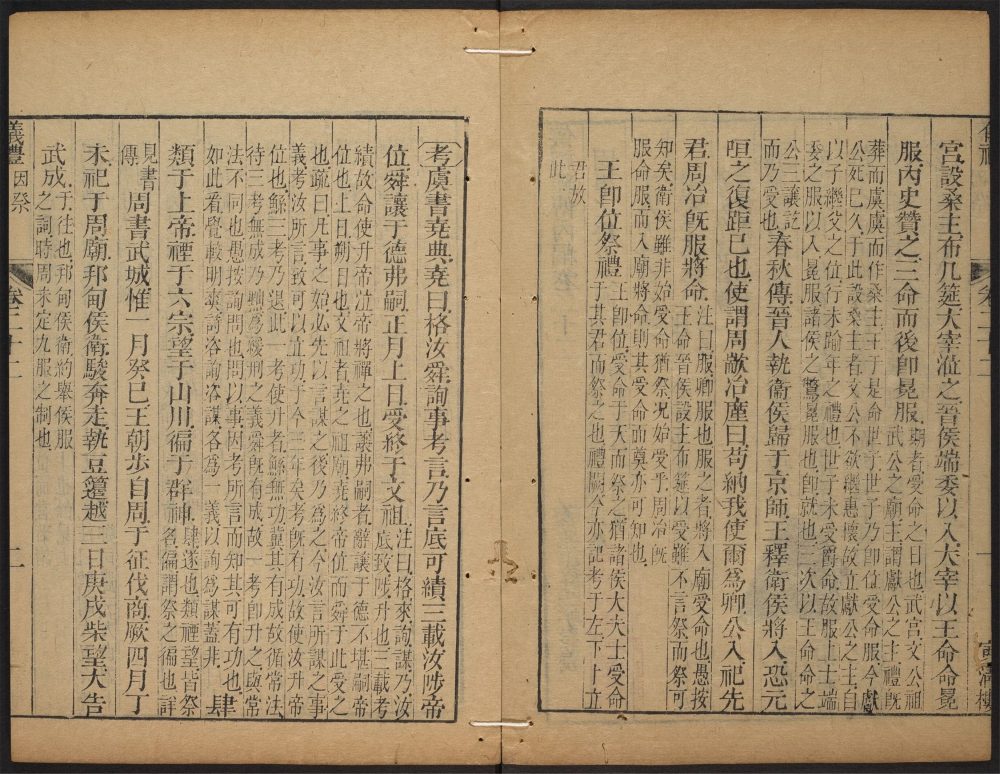 宮設桑主布几筵大宰涖之晉侯端委以入大宰以王命命冕
服內史贊之三命而後卽冕服
期者受命之日也武宮文公祖
武公之廟主謂獻公之主禮旣
葬而虞虞而作桑主主于是命世子世子乃卽位受命服今獻
公死已久于此設桑主者文公不欲繼惠懷故立獻公之主自
以子繼父之位行未踰年之禮也世子未受爵命故服上士端
委之服以入冕服諸侯之鷩冕服也卽就也三次以王命命之
公三讓訖
而乃受也
春秋傳晉人執衞侯歸于京師王釋衞侯將入恐元
咺之復距已也使謂周歂冶廑曰苟納我使爾爲卿公入祀先
君周冶旣服將命
注曰服卿服也服之者將入廟受命也愚按
王命晉侯設主布筵以受雖不言祭而祭可
知矣衛侯雖非始受命猶祭况始受乎周冶旣
服命服而入廟將命則其受命而奠亦可知也
王卽位祭禮
王卽位受命于天而祭之猶諸侯大夫士受命
于其君而祭之也禮闕今亦記考于左下十立
君故
此
考虞書堯典堯曰格汝舜詢事考言乃言底可績三載汝陟帝
位舜讓于德弗嗣正月上日受終于文祖
注曰格來詢謀乃汝
底致陟升也三載考
績故命使升帝位帝將禪之也讓弗嗣者辭讓于德不堪嗣
位也上日朔日也文祖者堯之祖廟堯終帝位而舜于此受之
也疏曰凡事之始必先以言謀之後乃爲之今汝言所謀之事
義考汝所言致可以立功于今三年矣考旣有功故使汝升帝
位也鯀三考乃退此一考使升者鯀無功冀其有成故循常法
待三考無成乃黜爲緩刑之義舜旣有成故一考卽升之與常
法不同也愚按詢問也問以事因考所言而知其可有功也
如此看覺較明諮詢諮謀各爲一義以詢爲謀蓋非
肆
類于上帝禋于六宗望于山川徧于群神
肆遂也類禋望皆祭
名徧謂祭之徧也詳
見書
傳
周書武城惟一月癸巳王朝步自周于征伐商厥四月丁
未祀于周廟邦甸侯衛駿奔走執豆籩越三日庚戌柴望大告
武成
于往也邦甸侯衛約舉侯服
之詞時周未定九服之制也
儀禮因祭 卷二十二 二